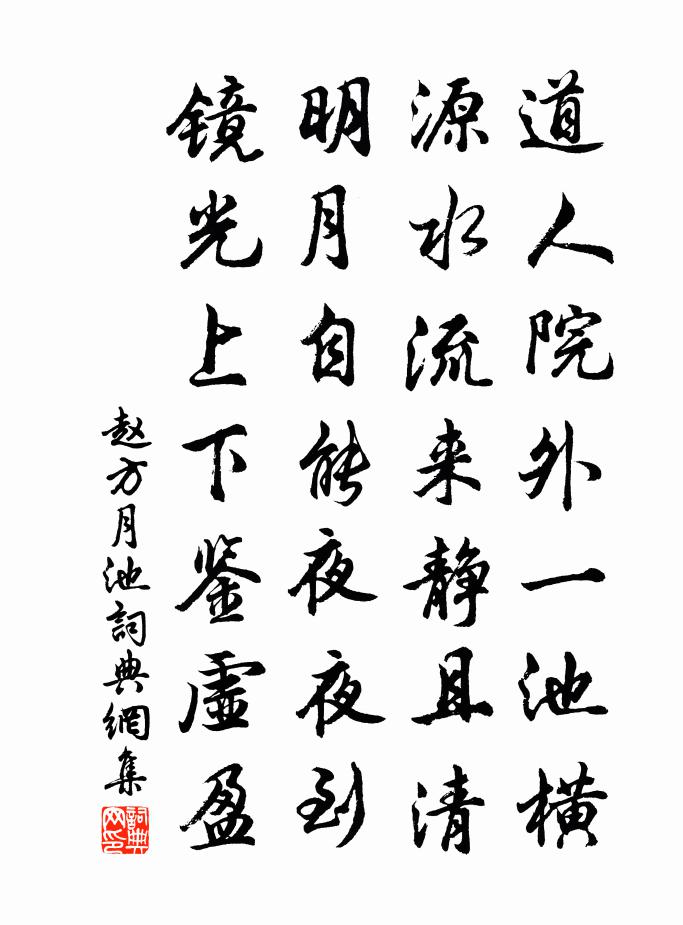 道人院外一池横
源水流来静且清
明月自能夜夜到
镜光上下鉴虚盈
赵方月池詞典網集
詞典网印